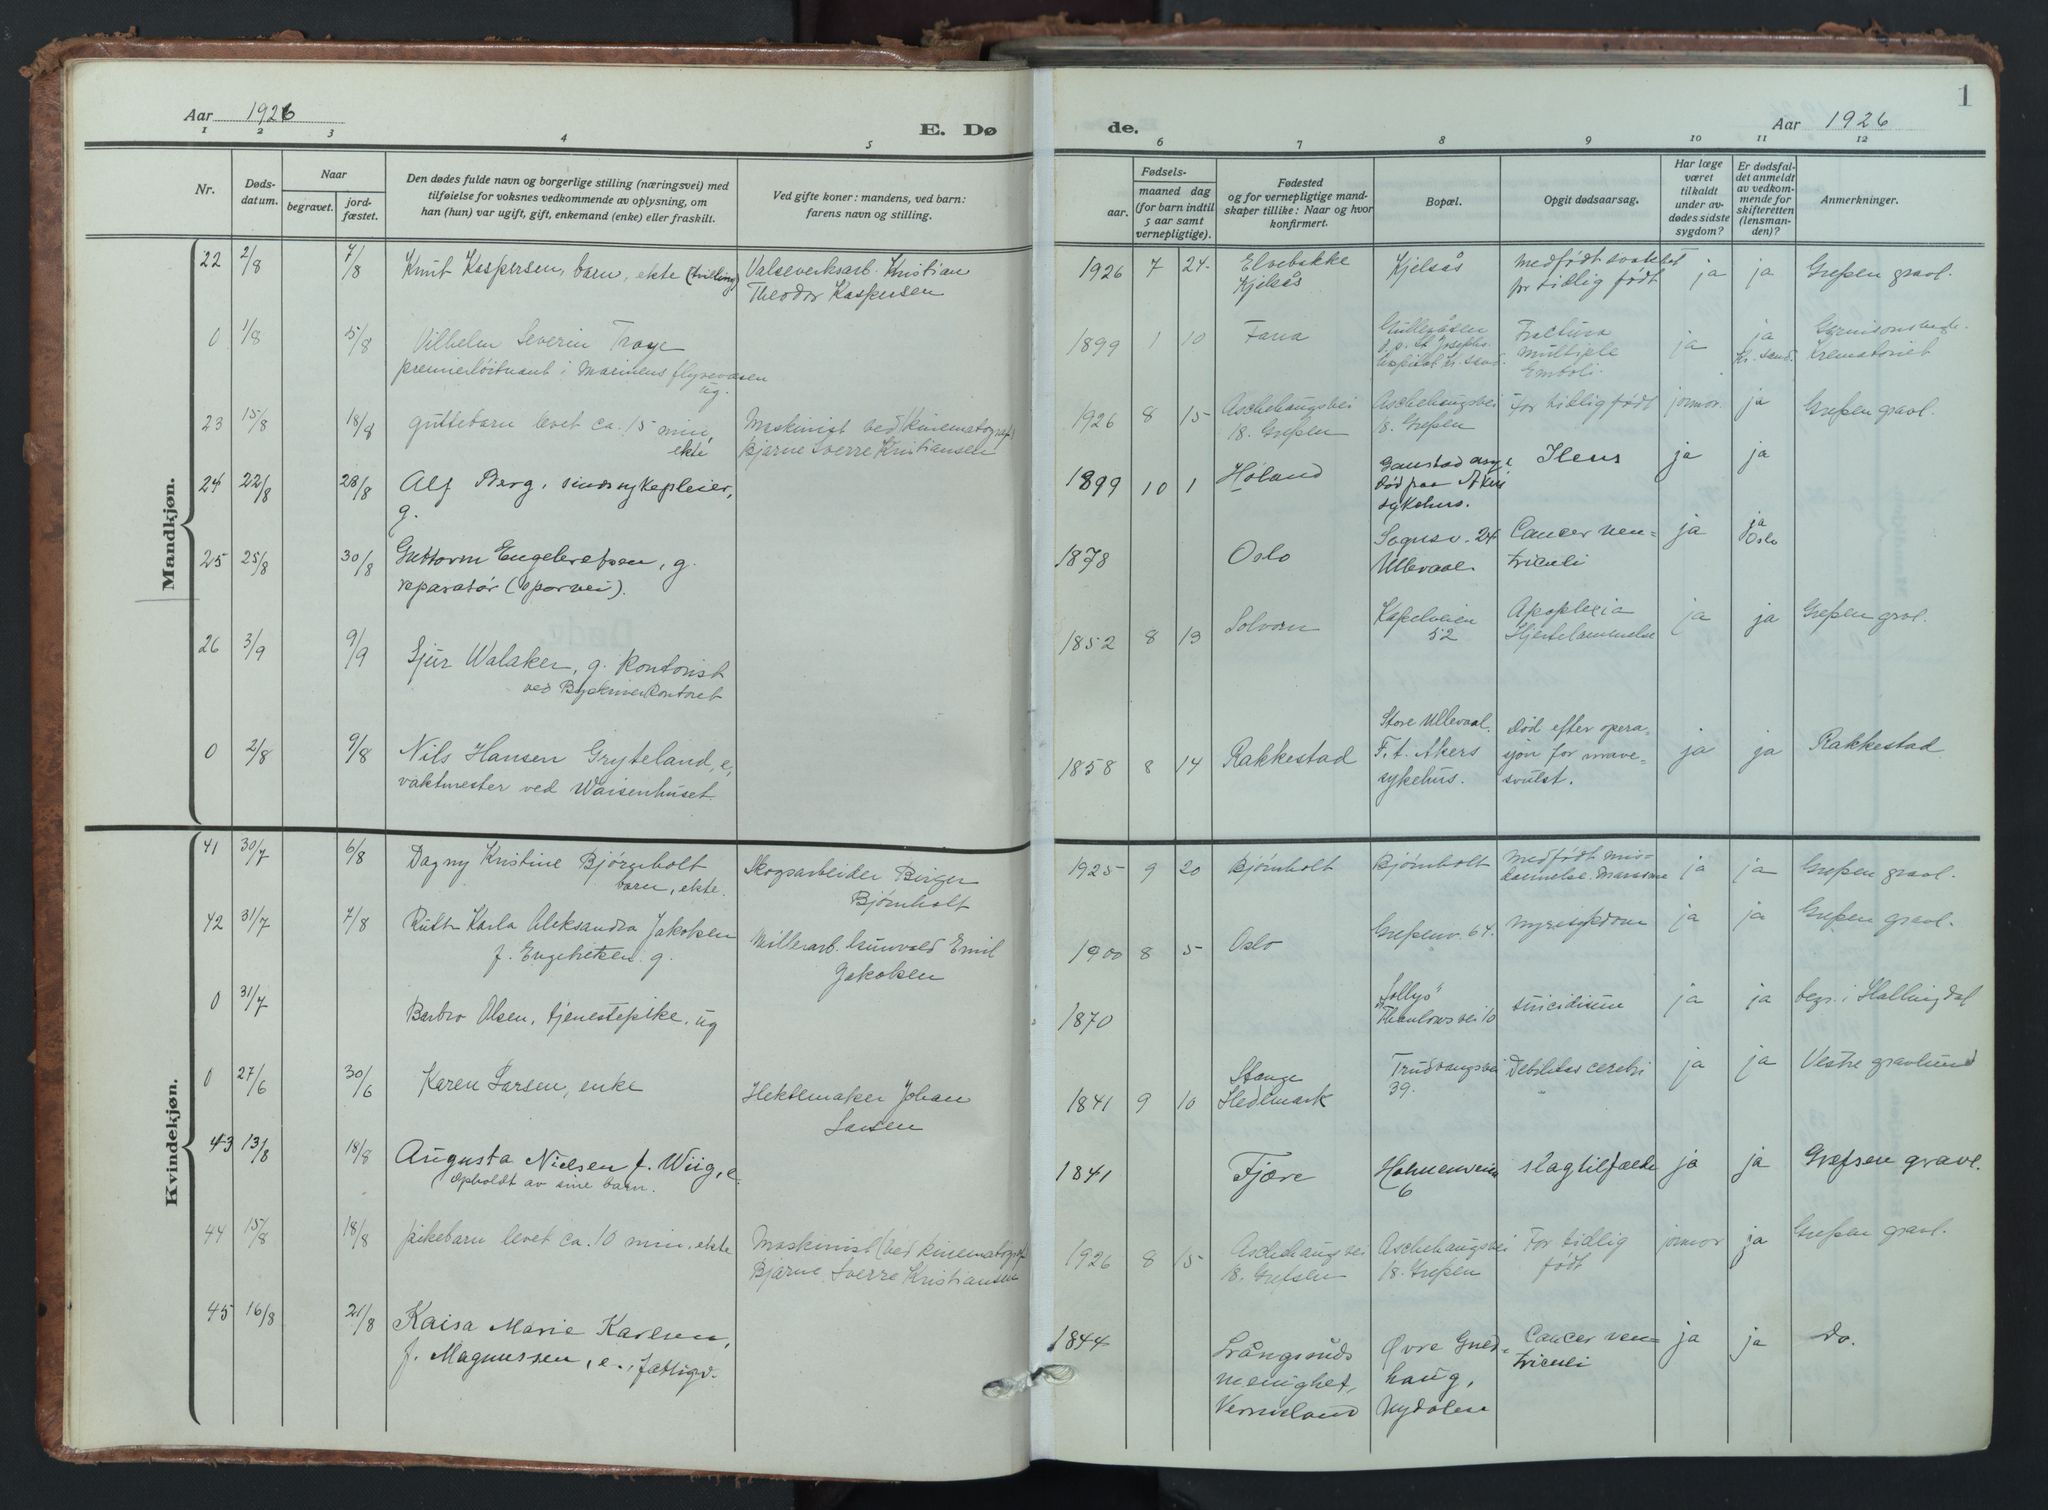 Aar 1926
E. Dø
de.
Aar 1926
1
1 2 3 4 5 6 7 8 9 10 11 12
Nr.
Døds-
datum.
Naar
begravet.
jord-
fæstet.
Den dødes fulde navn og borgerlige stilling (næringsvei) med
tilføielse for voksnes vedkommende av oplysning, om
han (hun) var ugift, gift, enkemand (enke) eller fraskilt.
Ved gifte koner: mandens, ved barn:
farens navn og stilling.
Fødsels-
aar.
maaned dag
(for barn indtil
5 aar samt
vernepligtige).
Fødested
og for vernepligtige mand-
skaper tillike: Naar og hvor
konfirmert.
Bopæl.
Opgit dødsaarsag.
Har læge
været
tilkaldt
under av-
dødes sidste
sygdom?
Er dødsfal-
det anmeldt
av vedkom-
mende for
skifteretten
(lensman-
den)?
Anmerkninger.
Mandkjøn.
22 2/8 7/8 Knut Kaspersen, barn, ekte (tvilling) Valseverksarb. Kristian
Theodor Kaspersen
1926 7 24 Elvebakke
Kjelsås
Kjelsås
Medfødt svakhet
for tidlig født
ja ja Grefsen gravl.
0 1/8 5/8 Vilhelm Severin Troye
premierløitnant i Marinens flyvevæsen
ug.
1899 1 10 Fana
St. Josephs
Hospital Kr. sand
Fractura
multiple
Emboli.
ja ja
Kr. sand.
Krematoriet
23 15/8 18/8 guttebarn levet ca. 15 min,
ekte
Maskinist ved kinematograf
Bjarne Sverre Kristiansen
1926 8 15 Aschehaugsvei
18. Grefsen
Aschehaugsvei
18. Grefsen
For tidlig født jormor ja Grefsen gravl.
24 22/8 28/8 Alf Berg, sindssykepleier,
g.
1899 10 1 Høland
Gaustad asyl
død paa Akers
sykehus.
Ileus ja ja
25 25/8 30/8 Guttorm Engebretsen, g.
reparatør (sporvei).
1878 Oslo
Sognsv. 24
Ullevaal
Cancer ven-
triculi
ja ja
Oslo
26 3/9 9/9 Sjur Walaker, g. kontorist
ved Byskriverkontoret
1852 8 13 Solvorn
Kapelveien
52
Apoplexia
Hjertelammelse
ja ja Grefsen gravl.
0 2/8 9/8 Nils Hansen Gryteland, e,
vaktmester ved Waisenhuset
1858 8 14 Rakkestad
Store Ullevaal.
F. t. Akers
sykehus.
Død efter opera-
sjon for mave-
svulst.
ja ja Rakkestad
Kvindekjøn.
41 30/7 6/8 Dagny Kristine Bjørnholt
barn, ekte.
Skogsarbeider Birger
Bjørnholt
1925 9 20 Bjørnholt Bjørnholt
Medfødt mis-
dannelse.
ja ja Grefsen gravl.
42 31/7 7/8 Ruth Karla Aleksandra Jakobsen
f. Engebretsen. g.
Møllerarb. Gunvald Emil
Jakobsen
1900 8 5 Oslo Grefsenv. 64. Nyresykdom ja ja Grefsen gravl.
0 31/7 Barbro Olsen, tjenestepike, ug
1870
"Sollyst"
Thaulowsvei 10
suicidium ja ja begr. i Hallingdal
0 27/6 30/6 Karen Larsen, enke
Hektemaker Johan
Larsen
1841 9 10 Stange
Hedemark
Trudvangsvei
39.
Debilitas cerebri ja ja Vestre gravlund
43 13/8 18/8 Augusta Nielsen f. Wiig, e.
Opholdt av sine barn.
1841 Fjære
Holmenveien
6
slagtilfælde ja ja Grefsen gravl.
44 15/8 18/8 pikebarn levet ca. 10 min, ekte
Maskinist (ved kinematograf
Bjarne Sverre Kristiansen
1926 8 15 Aschehaugsvei
18. Grefsen
Aschehaugsvei
18. Grefsen
For tidlig
født
jormor ja Grefsen gravl.
45 16/8 21/8 Kaisa Marie Karlsen,
f. Magnussen, e., fattigv.
1844 Långsruds
menighet,
Vermeland
Øvre Guld-
haug,
Nydalen
Cancer ven-
triculi
ja ja do.